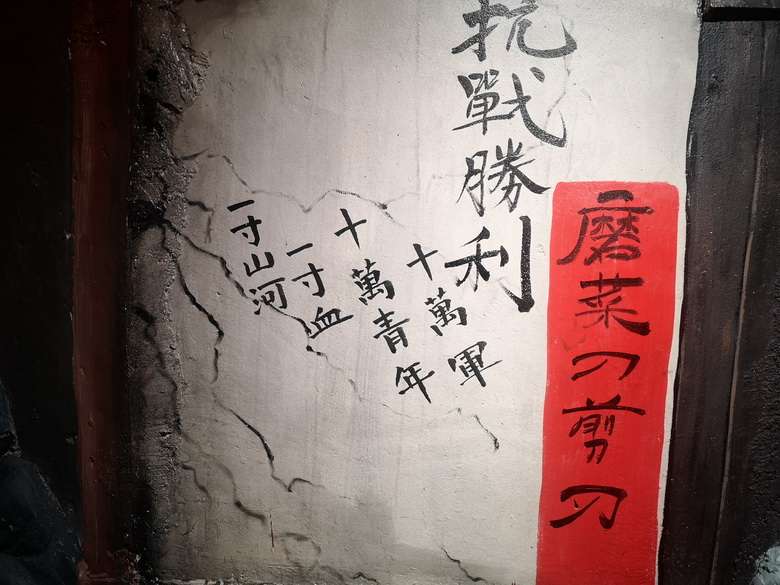 磨菜刀剪刀
抗戰勝利
十萬軍
十萬青年
一寸血
一寸山河